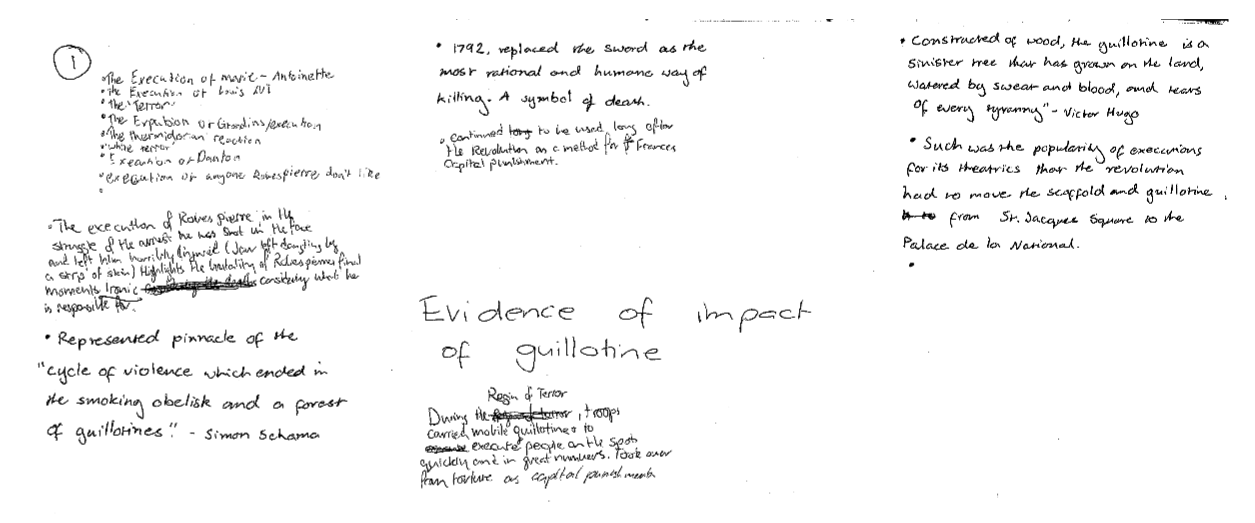 1
•The Execution of Marie-Antoinette
•the Execution of Louis XVI
•The "Terror"
•The Expulsion of Girondins/execution
•The thermidorian reaction
•"white terror"
•Execution of Danton
•execution of anyone Robespierre don't like
•
•The execution of Robespierre, in the
struggle of the arrest he was shot in the face
and left him horribly injured (Jaw left dangling by
a strip of skin) Highlights the brutality of Robespierres final
moments Ironic considering what he
is responsible for.
• Represented pinnacle of the
"cycle of violence which ended in
the smoking obelisk and a forest
of guillotines". - Simon Schama
• 1792, replaced the sword as the
most rational and humane way of
killing. A symbol of death.
• continued to be used long after
the Revolution as a method for Frances
Capital punishment.
Evidence of impact
of guillotine
Regin of Terror
During the , troops
carried mobile guillotines to
execute people on the spot
quickly and in great numbers. Took over
from torture as capital punishment
• Constructed of wood, the guillotine is a
sinister tree that has grown on the land,
watered by swear and blood, and tears
of every tyranny" - Victor Hugo
• Such was the popularity of executions
for its theatrics that the revolution
had to move the scaffold and guillotine,
from St. Jacques Square to the
Palace de la National.
•